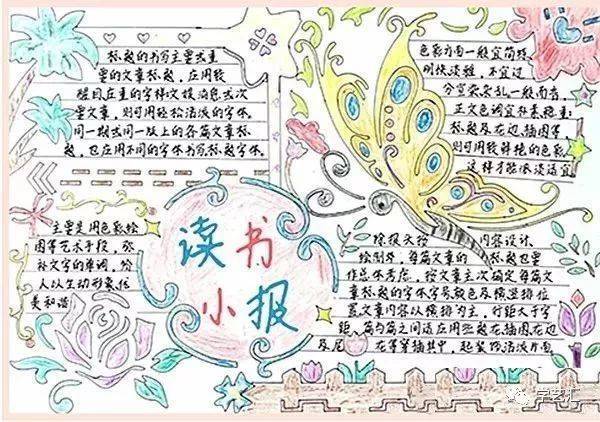 标题的书写主要或重
要的文章标题,应用较
醒目庄重的字体文娱消息或次
要文章,则可用轻松活泼的字体。
同一期或同一版上的各篇文章标
题,也应用不同的字体书写标题字体。
色彩方面一般宜简短
明快淡雅,不宜过
分宣染杂乱一般而言,
正文色调宜朴素稳重
标题及花边、插图等,
则可用较鲜艳的色彩
这样才能浓淡适宜
主要是用色彩绘
图等艺术手段,弥
补文字的单调,给
人以生动形象优
美和谐
读书
小报
绘报文按 内容设计,
绘制外,每篇文章的 标题也要
作总体考虑,按文章主次确定每篇文
章标题的字体字号颜色及横竖排位
置文章内容以横排为主,行距大于字
距,篇与篇之间适应用题题花插图花边
及尾 花等穿插其中,起装饰活泼方面
学艺汇